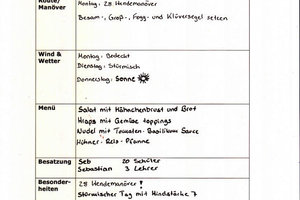 Route/
Manöver
Montag: 28 Hendemanöver
Besam-, Groß-, Fogg- und Klüversegel setzen
Wind &
Wetter
Montag: Bedeckt
Dienstag: Stürmisch
Donnerstag: Sonne
Menü
Salat mit Hähnchenbrust und Brot
Wraps mit Gemüse toppings
Nudel mit Tomaten-Basilikum Sauce
Hühner-Reis-Pfanne
Besatzung
Seb 20 Schüler
Sebastian 3 Lehrer
Besonder-
heiten
28 Hendemanöver!
Stürmischer Tag mit Windstärke 7